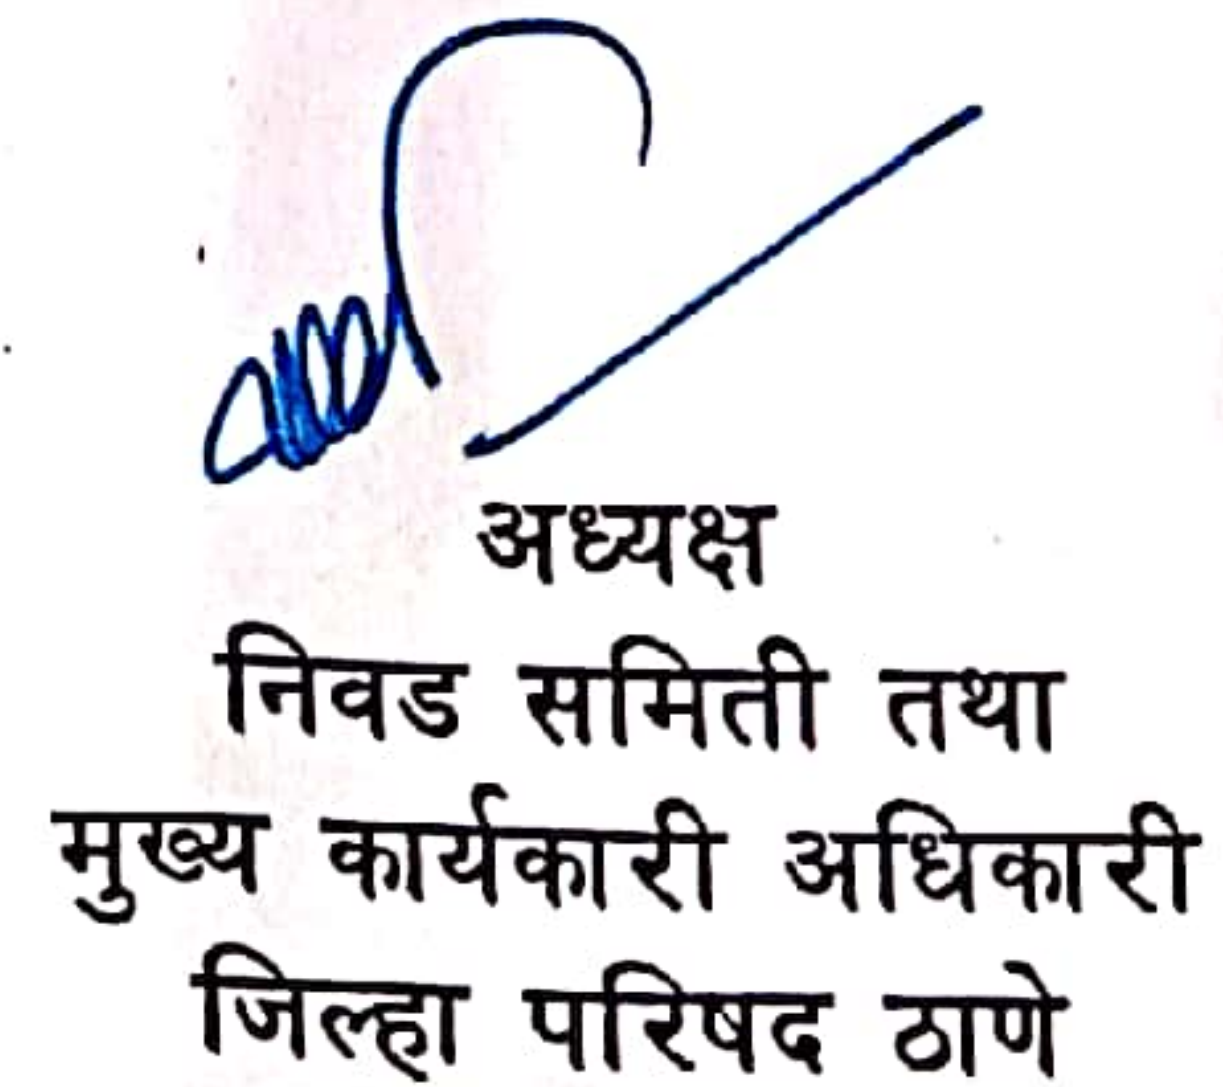 अध्यक्ष
निवड समिती तथा
मुख्य कार्यकारी अधिकारी
जिल्हा परिषद ठाणे